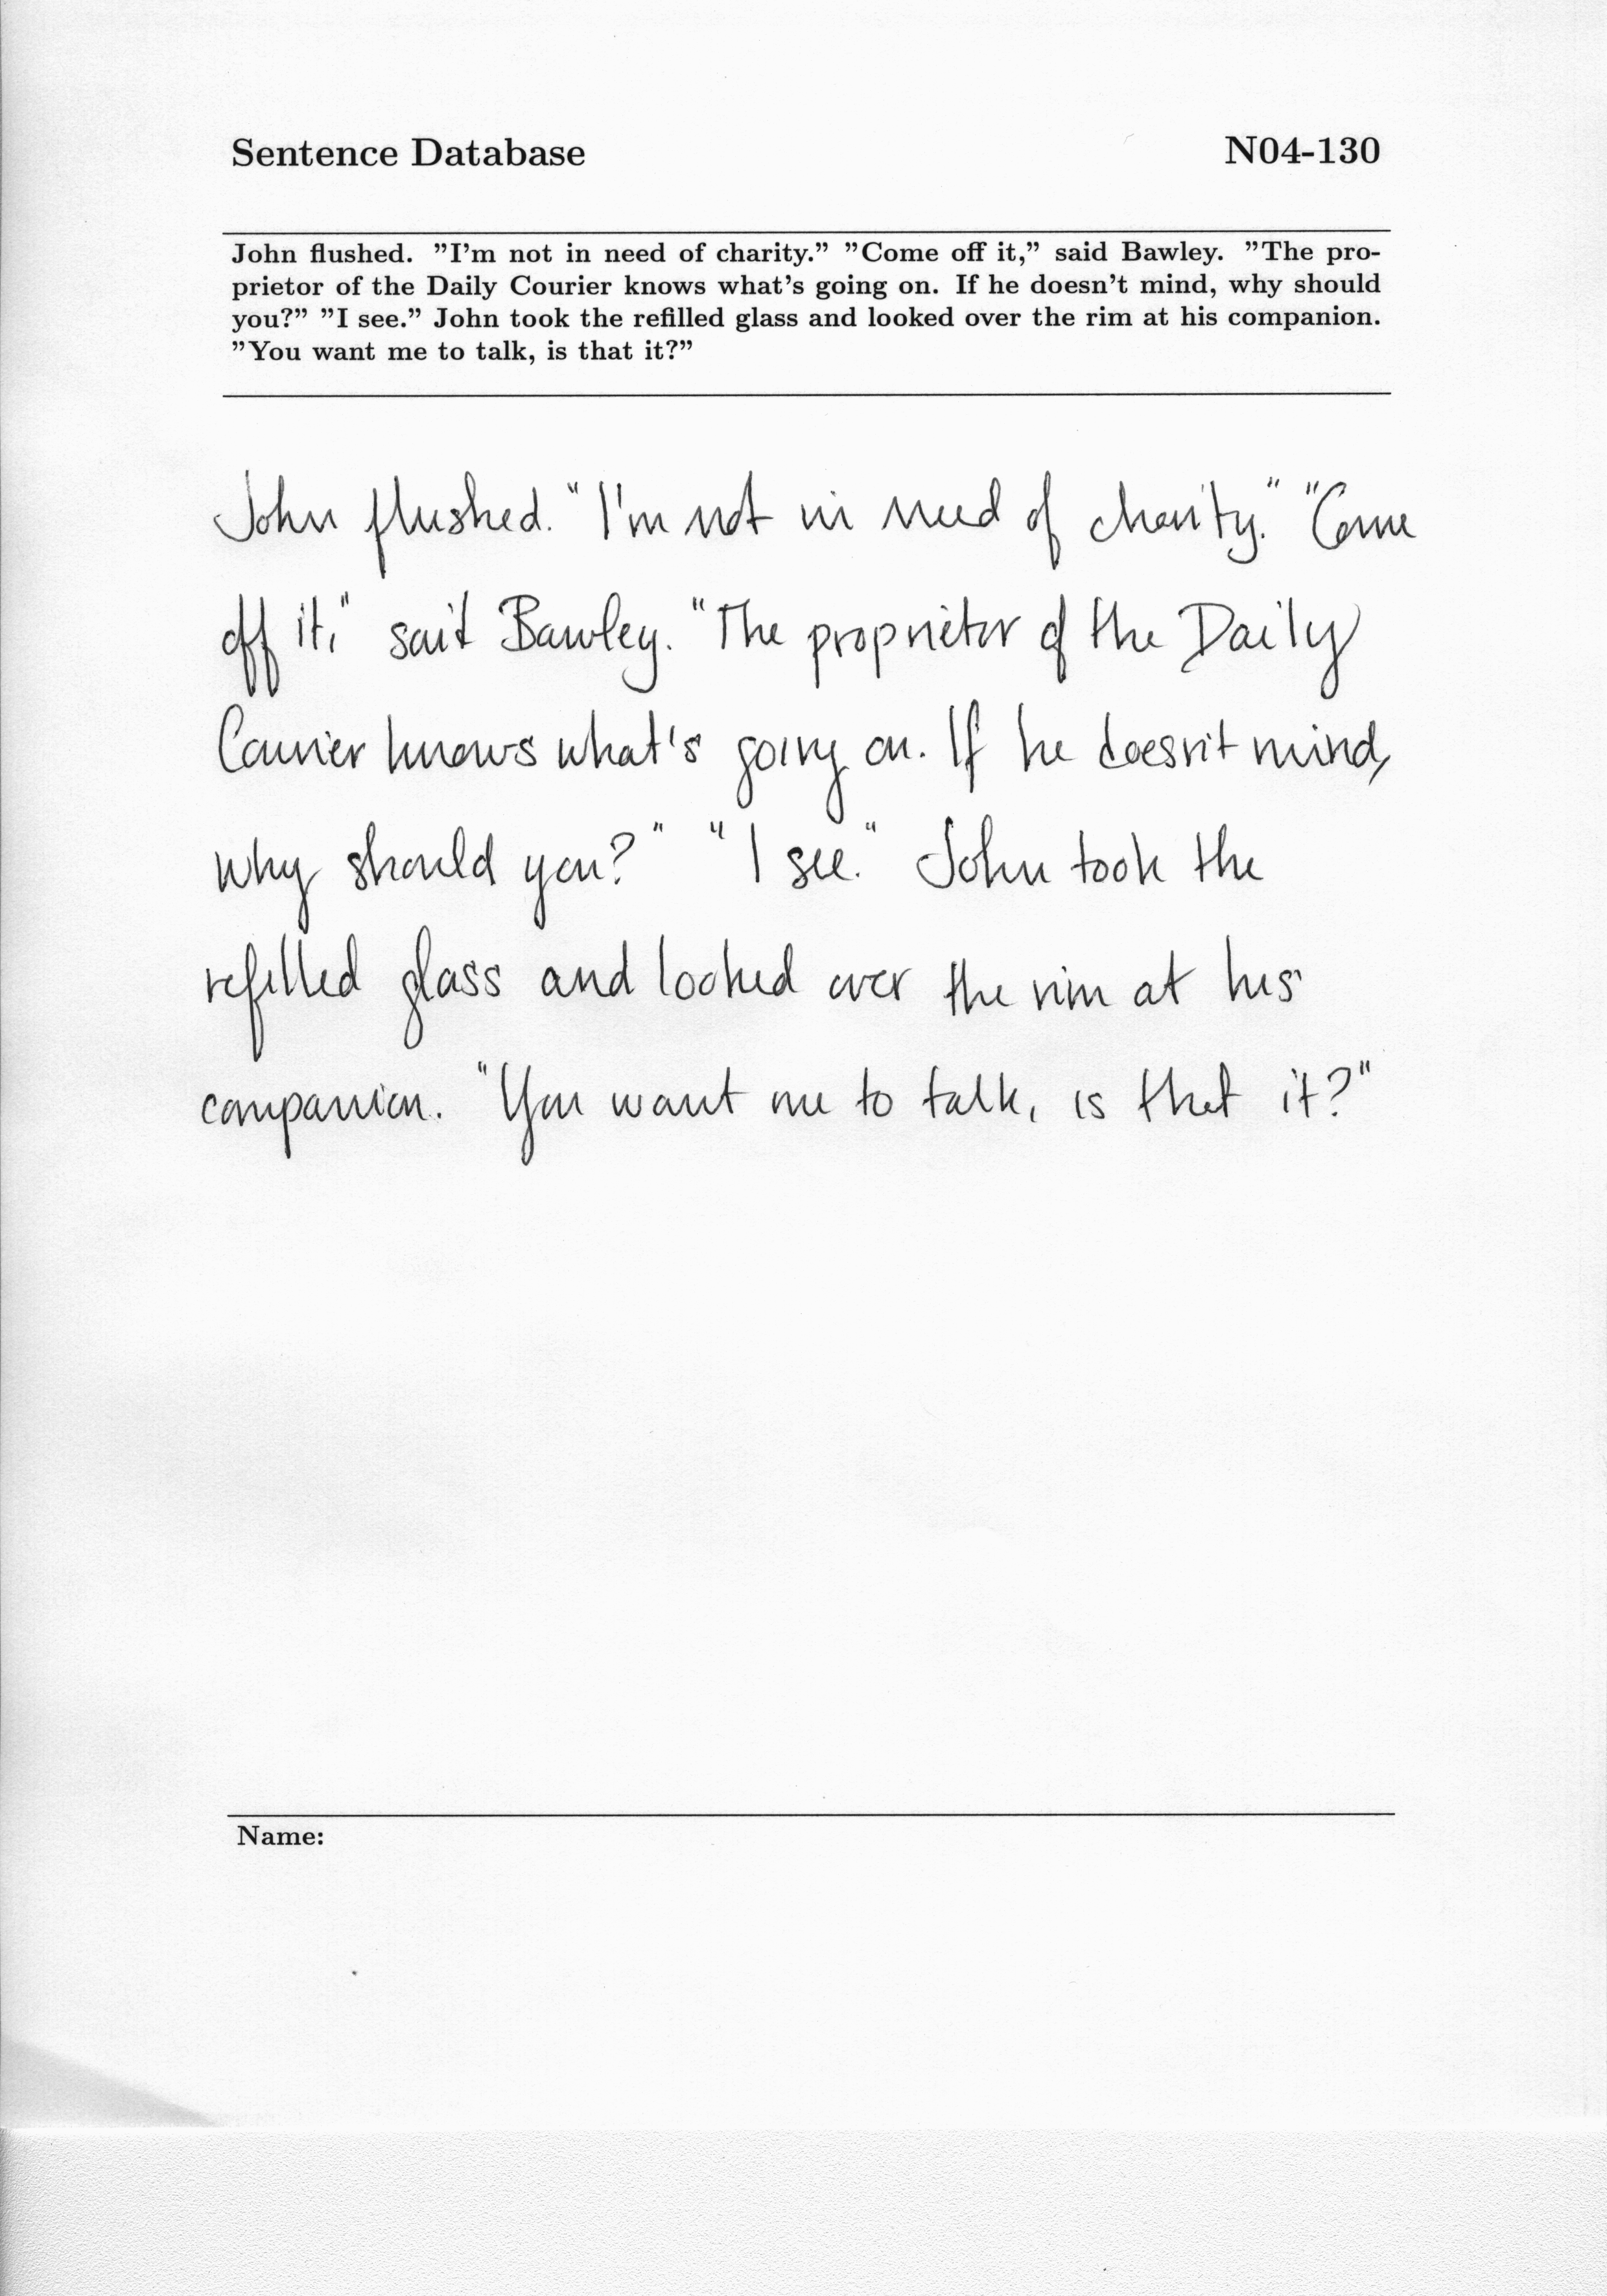 Sentence Database N04-130
John flushed. ”I’m not in need of charity.” ”Come off it,” said Bawley. ”The pro-
prietor of the Daily Courier knows what’s going on. If he doesn’t mind, why should
you?” ”I see.” John took the refilled glass and looked over the rim at his companion.
”You want me to talk, is that it?”
John flushed. "I'm not in need of charity." "Come
off it," said Bawley. "The proprietor of the Daily
Courier knows what's going on. If he doesn't mind,
why should you?" "I see." John took the
refilled glass and looked over the rim at his
companion. "You want me to talk, is that it?"
Name: